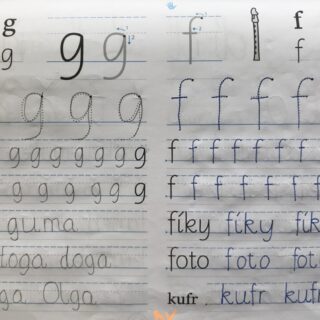 g g g
g
g g g
g g g g g g g g
g g g g g g g
guma
toga doga
ga Olga
f f
f
f f f f
f f f f f f f f
f f f f f f f f
fíky fíky fík
foto foto fot
kufr kufr kufr